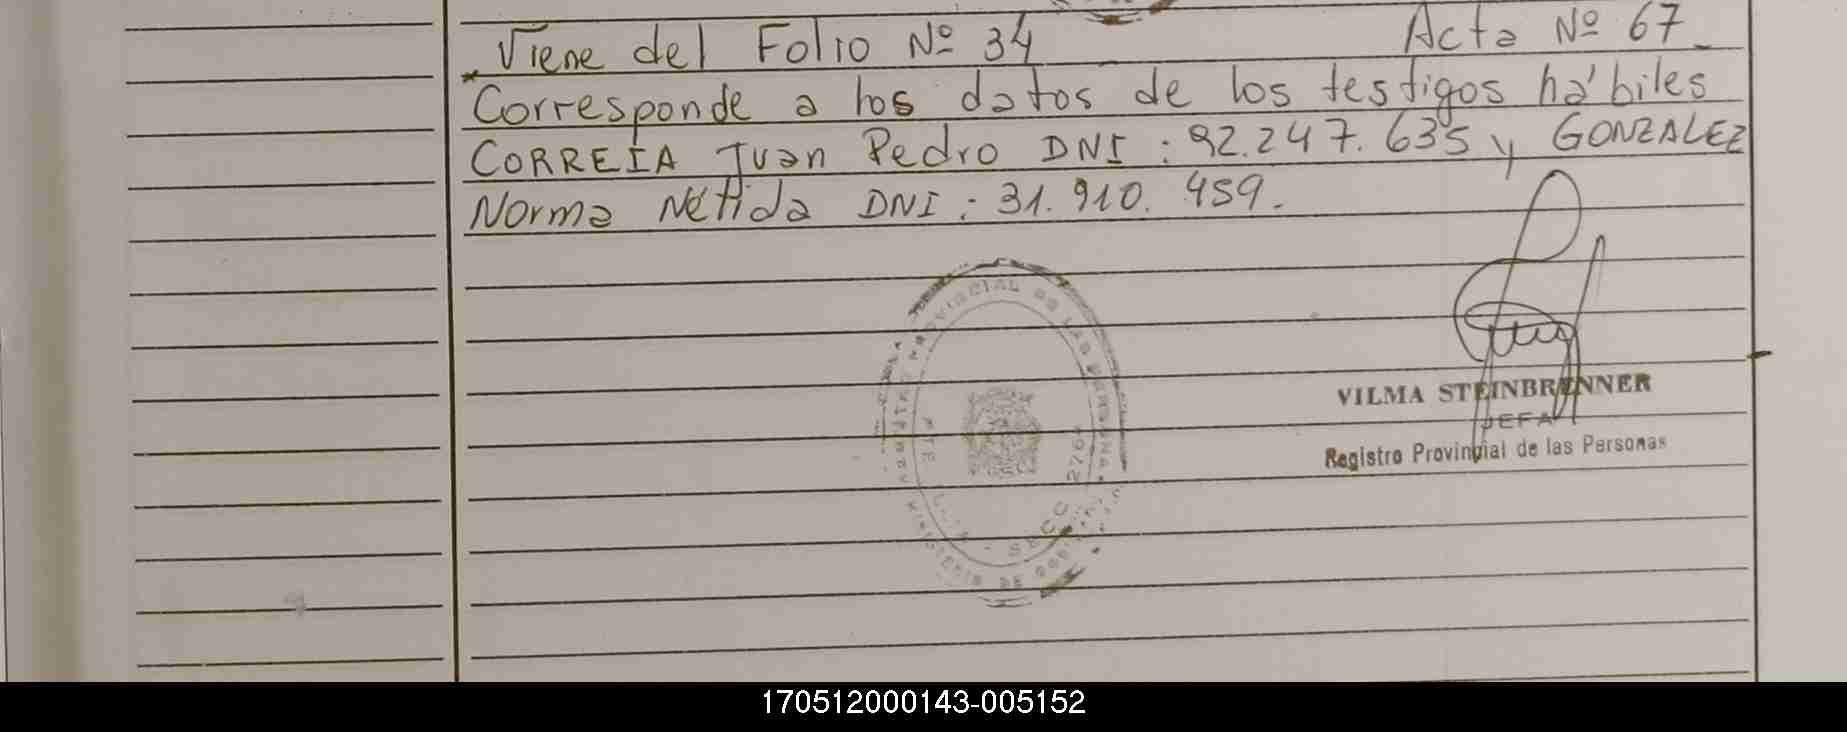 Viene del Folio Nº 34 Acta Nº 67_
Corresponde a los datos de los testigos hábiles
CORREIA Juan Pedro DNI: 92.247.635 y GONZALEZ
Norma Nélida DNI: 31.910.459.
REGISTRO PROVINCIAL DE LAS PERSONAS
MINISTERIO DE GOB.
SECC 276ª
VILMA STEINBRENNER
JEFA
Registro Provincial de las Personas
170512000143-005152